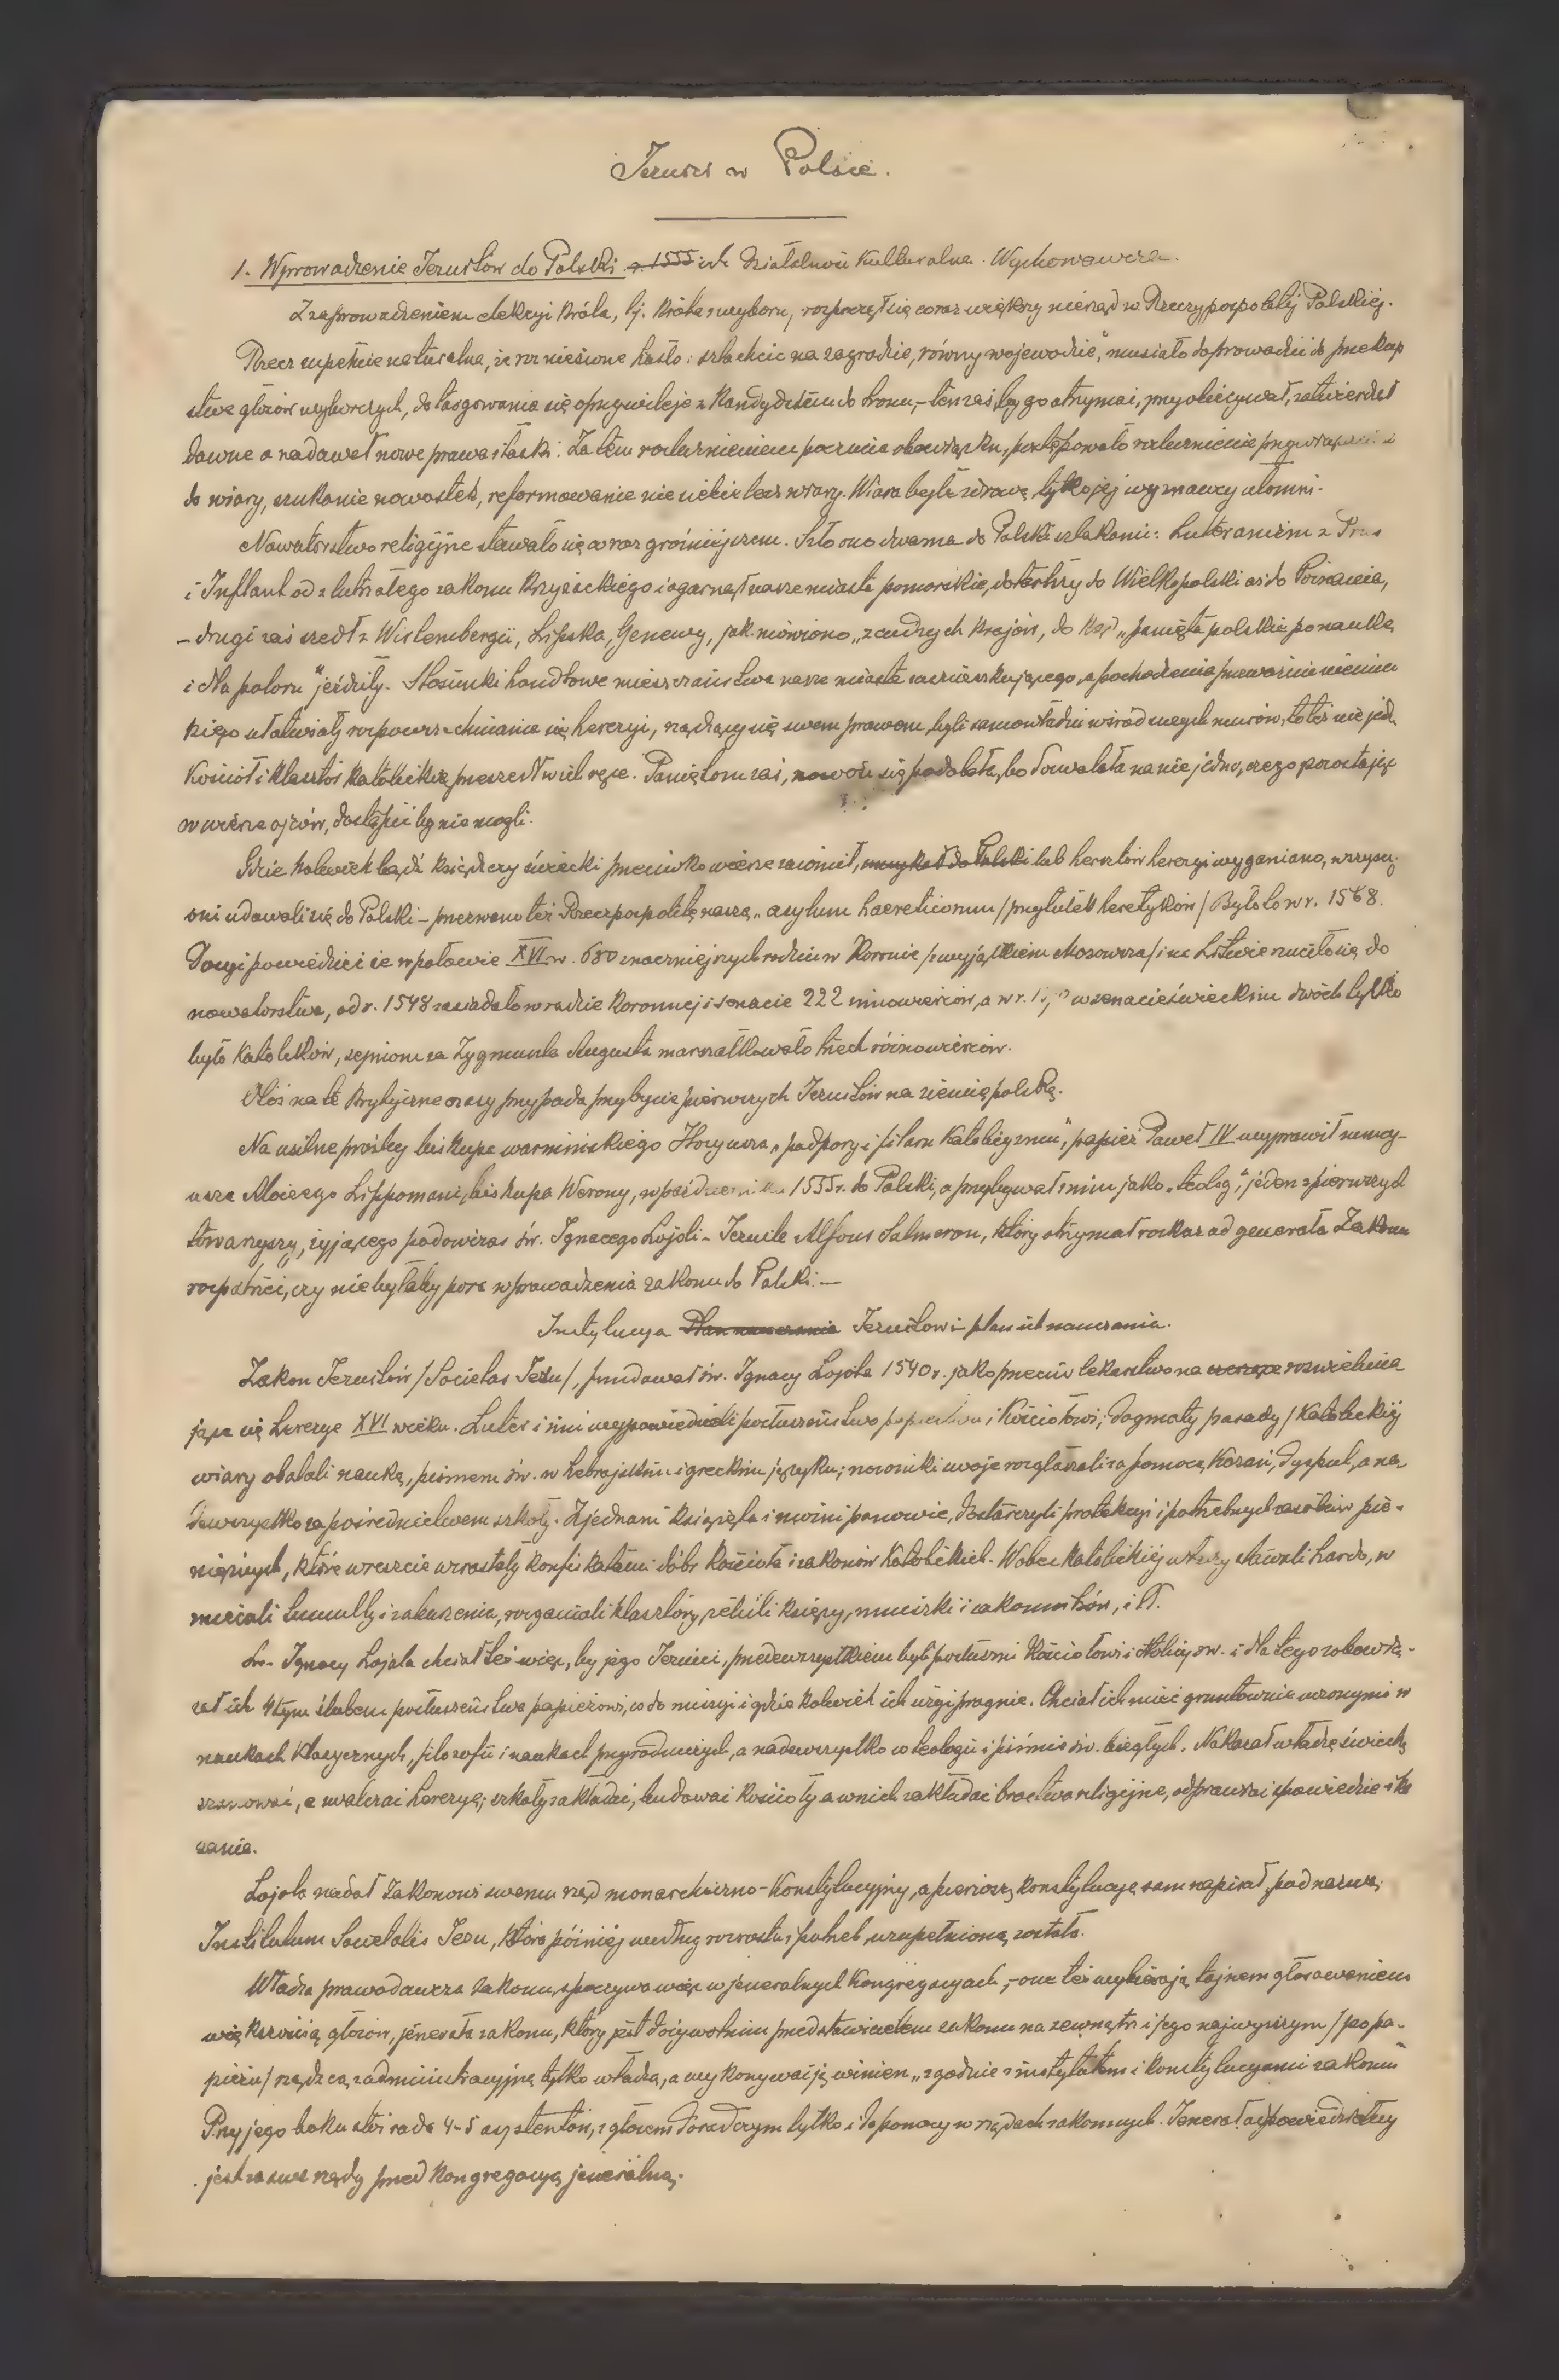 Jezuici w Polsce.
1. Wprowadzenie Jezuitów do Polski r. 1555 ich działalność kulturalna. Wychowawcza.
Z zaprowadzeniem elekcyi króla, tj. króla z wyboru, rozpoczął się coraz większy nierząd w Rzeczypospolitéj Polskiéj.
Rzecz zupełnie naturalna, że rozniesione hasło: szlachcic na zagrodzie, równy wojewodzie", musiało doprowadzić do przekup
stwa głosów wyborczych, do targowania się o przywileje z kandydatem do tronu, – ten zaś, by go otrzymać, przyobiecywał, zatwierdzał
dawne a nadawał nowe prawa i łaski. Za tém rozluźnieniem poczucia obowiązku, postępowało rozluźnienie przywiązania
do wiary, szukanie nowostek, reformowanie nie siebie lecz wiary. Wiara była zdrową, tylko jéj wyznawcy ułomni.
Nowatorstwo religijne stawało się coraz groźniejszem. Szło ono dwoma do Polski szlakami: Luteranizm z Prus
i Inflant od zlutrzałego zakonu Krzyżackiego i ogarnął nasze miasta pomorskie, dotarłszy do Wielkopolski aż do Poznania,
– drugi zaś szedł z Wirtembergii, Lipska, Genewy, jak mówiono „z cudzych krajów, do kąd „panięta polskie po naukę
i dla poloru" jeździły. Stosunki handlowe mieszczaństwa nasze miasta zamieszkującego, a pochodzenia przeważnie niemiec
kiego ułatwiały rozpowszechnianie się herezyi, rządzący się swem prawem, byli samowładni wśród swych murów, to téż nie jed.
Kościół i klasztor katolickie przeszedł w ich ręce. Paniętom zaś, nowość się podobała, bo dozwalała na nie jedno, czego pozostając
w wierze ojców, dostąpić by nie mogli.
Gdzie kolwiek bądź książęcy świecki przeciwko wierze zawinił, umykał do Polski lub hersztów herezyi wyganiano, wszyscy
oni udawali się do Polski – przezwano téż Rzeczpospolitę naszą „asylum haereticorum /przytułek heretyków/ Było to w r. 1568.
Dosyć powiedzieć że w połowie XVI w. 680 znaczniejszych rodzin w Koronie /z wyjątkiem Mazowsza/ i na Litwie rzuciło się do
nowatorstwa, od r. 1548 zasiadało w radzie koronnej i senacie 222 innowierców, a w r. w senacie świeckim dwóch tylko
było katolików, sejmom za Zygmunta Augusta marszałkowało trzech różnowierców.
Otóż na te krytyczne czasy przypada przybycie pierwszych Jezuitów na ziemię polską.
Na usilne prośby biskupa warmińskiego Hozyusza „podpory i filaru katolicyzmu", papież Paweł IV wyprawił nuncy-
usza Alojzego Lippomani, biskupa Werony, w październiku 1555 r. do Polski, a przybywał z nim jako „teolog", jeden z pierwszych
towarzyszy, żyjącego podówczas św. Ignacego Lojoli – Jezuita Alfons Salmeron, który otrzymał rozkaz od generała Zakonu
rozpatrzeć, czy nie byłaby pora wprowadzenia zakonu do Polski. –
Instytucya Plan nauczania Jezuitów i plan ich nauczania.
Zakon Jezuitów /Societas Jesu/, fundował św. Ignacy Lojola 1540 r. jako przeciw lekarstwo na rozwielmia
jące się herezye XVI wieku. Luter i inni wypowiedzieli posłuszeństwo papieztwu i Kościołowi; dogmaty zasady /katolickiéj
wiary obalali nauką, pismem św. w hebrajskim i greckim języku; nowinki swoje rozgłaszali za pomocą kazań, dysput, a na
dewszystko za pośrednictwem szkoły. Zjednani książęta i możni panowie, dostarczyli protekcyi i potrzebnych zasobów pie-
niężnych, które wreszcie wzrastały konfiskatami dóbr kościoła i zakonów katolickich. Wobec katolickiéj władzy stawali hardo, w
zniecali tumulty i zaburzenia, rozganiali klasztory, żenili księży, mniszki i zakonników, i t.
Św. Ignacy Lojola chciał téż więc, by jego Jezuici, przedewszystkiem byli posłuszni Kościołowi i Stolicy św. i dla tego zobowią-
zał ich 4tym ślubem posłuszeństwa papieżowi, co do misyi i gdzie kolwiek ich użyć pragnie. Chciał ich mieć gruntownie uczonymi w
naukach klasycznych, filozofii i naukach przyrodniczych, a nadewszystko w teologii i piśmie św. biegłych. Nakazał władzę świecką
szanować, a zwalczać herezyę; szkoły zakładać, budować kościoły a w nich zakładać bractwa religijne, odprawiać spowiedzie i ka
zania.
Lojola nadał Zakonowi swemu rząd monarchiczno-konstytucyjny, a pierwszą konstytucyę sam napisał, pod nazwą:
Institutum Societatis Jesu, która później według rozrostu i potrzeb, uzupełnioną została.
Władza prawodawcza zakonu, spoczywa więc w jeneralnych kongregacyach, – one téż wybierają tajnem głosowaniem
większością głosów, jenerała zakonu, który jest dożywotnim przedstawicielem zakonu na zewnątrz i jego najwyższym /po pa-
pieżu/ rządzcą z administracyjną tylko władzą, a wykonywać ją winien „zgodnie z instytutem i konstytucyami zakonu"
Przy jego boku stoi rada 4-5 asystentów, z głosem doradczym tylko i do pomocy w rządach zakonnych. Jenerał odpowiedzialny
jest za swe rządy przed kongregacyą jeneralną.